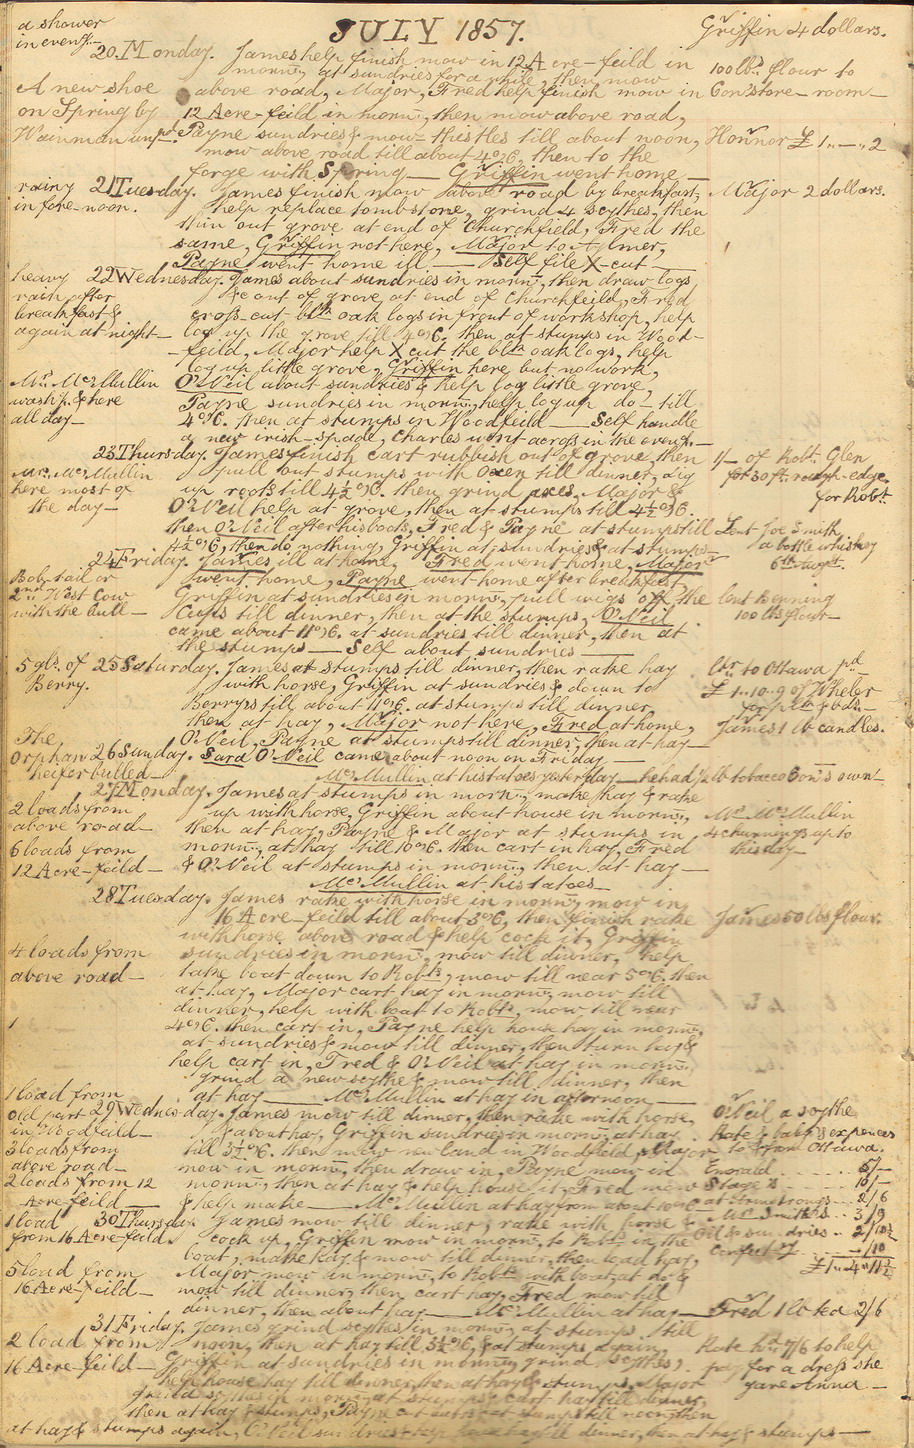 a shower
in even^g.—
JULY 1857.
Griffin 4 dollars.
20. Monday. James help finish mow in 12 Acre-feild in
morn^g, at sundries for a while, then mow
100 lbs. flour to
A new shoe
above road, Major, Fred help finish mow in
Con's store-room—
on Spring by
12 Acre-feild in morn^g, then mow above road,
Wainman unp^d.
Payne sundries & mow thistles till about noon,
Honnor £ 1..—..2
mow above road till about 4 o/c, then to the
forge with Spring— Griffin went home—
rainy
in fore-noon.
21 Tuesday. James finish mow above road by breakfast,
Major 2 dollars.
help replace tombstone, grind 4 scythes, then
thin out grove at end of Churchfield, Fred the
same, Griffin not here, Major to Aylmer,
Payne went home ill— Self file X-cut—
heavy
rain after
breakfast &
again at night—
22 Wednesday. James about sundries in morn^g, then draw logs,
&c out of grove at end of Churchfeild, Fred
cross-cut bl^k oak logs in front of workshop, help
log up the grove till 4 o/c, then at stumps in Wood-
-feild, Major help X cut the bl^k oak logs, help
log up little grove, Griffin here but no work,
Mrs. McMullin
wash'g & here
all day—
O'Neil about sundries & help log little grove,
Payne sundries in morn^g, help log up do. till
4 o/c. then at stumps in Woodfeild— Self handle
a new irish-spade, Charles went across in the even^g.—
23 Thursday. James finish cart rubbish out of grove, then
1/— of Rob^t. Glen
Mrs. McMullin
here most of
the day—
pull out stumps with Oxen till dinner, dig
for 30 ft. rough-edge
up roots till 4½ o/c. then grind axes, Major &
for Rob^t
O'Neil help at grove, then at stumps till 4½ o/c.
then O'Neil after his boots, Fred & Payne at stumps till
Lent Joe Smith
4½ o/c, then do nothing, Griffin at sundries & at stumps—
a bottle whiskey
24 Friday. James ill at home, Fred went home, Major
Bob-tail or
2nd West Cow
with the bull—
went home, Payne went home after breakfast,
Griffin at sundries in morn^g, pull wigs off the
lent Benning
Cups till dinner, then at the stumps, O'Neil
100 lbs flour—
came about 11 o/c. at sundries till dinner, then at
the stumps— Self about sundries—
5 gls. of
Berry.
25 Saturday. James at stumps till dinner, then rake hay
to Ottawa pd
with horse, Griffin at sundries & down to
£ 1..10..9 of Wheler
Berrys till about 11 o/c. at stumps till dinner,
then at hay, Major not here, Fred at home,
James 1 lb candles.
O'Neil, Payne at stumps till dinner, then at hay—
The
Orphan
heifer bulled—
26 Sunday. Sara O'Neil came about noon on Friday—
McMullin at his tatoes yesterday—he had ½ lb tobacco Con's own!—
27 Monday. James at stumps in morn^g, make hay & rake
2 loads from
above road—
up with horse, Griffin about house in morn^g,
Mrs. McMullin
then at hay, Payne & Major at stumps in
4 churnings up to
6 loads from
morn^g, at hay till 10 o/c. then cart in hay, Fred
this day—
12 Acre-feild—
& O'Neil at stumps in morn^g, then at hay—
McMullin at his tatoes—
28 Tuesday. James rake with horse in morn^g, mow in
16 Acre-feild till about 3 o/c, then finish rake
James 50 lbs flour.
with horse above road & help cock it, Griffin
4 loads from
above road—
sundries in morn^g, mow till dinner, help
take boat down to Rob^ts, mow till near 5 o/c. then
at hay, Major cart hay in morn^g, mow till
dinner, help with boat to Rob^ts, mow till near
1
4 o/c. then cart in, Payne help house hay in morn^g,
at sundries & mow till dinner, then turn hay &
help cart in, Fred & O'Neil at hay in morn^g,
grind a new scythe & mow till dinner, then
at hay— McMullin at hay in afternoon—
1 load from
old part
in Woodfeild—
29 Wednesday. James mow till dinner, then rake with horse,
O'Neil a scythe
& about hay, Griffin sundries in morn^g, at hay
Kate & baby's expences
3 loads from
above road—
till 3½ o/c. then mow new land in Woodfield, Major
to & from Ottawa.
mow in morn^g, then draw in, Payne mow in
Emerald ...... 5/—
2 loads from 12
Acre-feild—
morn^g, then at hay & help house it, Fred mow
Stages ...... 10/—
& help make— McMullin at hay from about 10 o/c—
at Armstrongs ... 2/6
1 load
from 16 Acre-feild.
30 Thursday. James mow till dinner, rake with horse &
McSmith's .. 3/9
cock up, Griffin mow in morn^g, to Rob^ts in the
Oil & sundries .. 2/10½
boat, make hay & mow till dinner, then load hay,
—/10
5 load from
16 Acre-feild—
Major mow in morn^g, to Rob^ts with boat, at do &
£1..4..11½
mow till dinner, then cart hay, Fred mow till
dinner, then about hay— McMullin at hay—
Fred 1 lb tea 2/6
31 Friday. James grind scythes in morn^g, at stumps till
2 load from
16 Acre-feild—
noon, then at hay till 3½ o/c, & at stumps again,
Kate had 7/6 to help
Griffin at sundries in morn^g, grind scythes,
pay for a dress she
help house hay till dinner, then at hay & stumps, Major
gave Anna—
grind scythes in morn^g, at stumps & cart hay till dinner,
then at hay & stumps, Payne
at hay & stumps again, O'Neil sundries till dinner, then at hay & stumps—